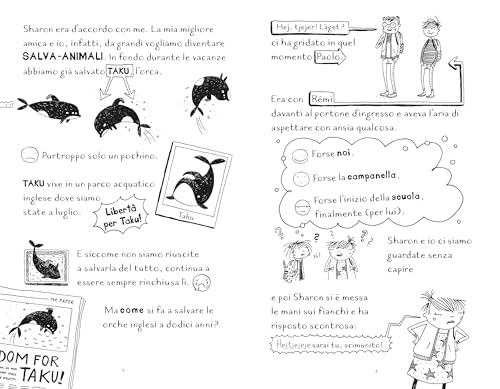 Sharon era d'accordo con me. La mia migliore
amica e io, infatti, da grandi vogliamo diventare
SALVA-ANIMALI. In fondo durante le vacanze
abbiamo già salvato TAKU, l'orca.
Purtroppo solo un pochino.
TAKU vive in un parco acquatico
inglese dove siamo
state a luglio.
Libertà
per Taku!
Taku
E siccome non siamo riuscite
a salvarla del tutto, continua a
essere sempre rinchiusa lì.
Ma come si fa a salvare le
orche inglesi a dodici anni?
THE PAPER
DOM FOR
TAKU!
Hej, tjejer! Läget?
ci ha gridato in quel
momento Paolo.
Era con Rémi
davanti al portone d'ingresso e aveva l'aria di
aspettare con ansia qualcosa.
Forse noi.
Forse la campanella.
Forse l'inizio della scuola,
finalmente (per lui).
? ? ? ?
Sharon e io ci siamo
guardate senza
capire
e poi Sharon si è messa
le mani sui fianchi e ha
risposto scontrosa:
Hejtjejeje sarai tu, scimunito!